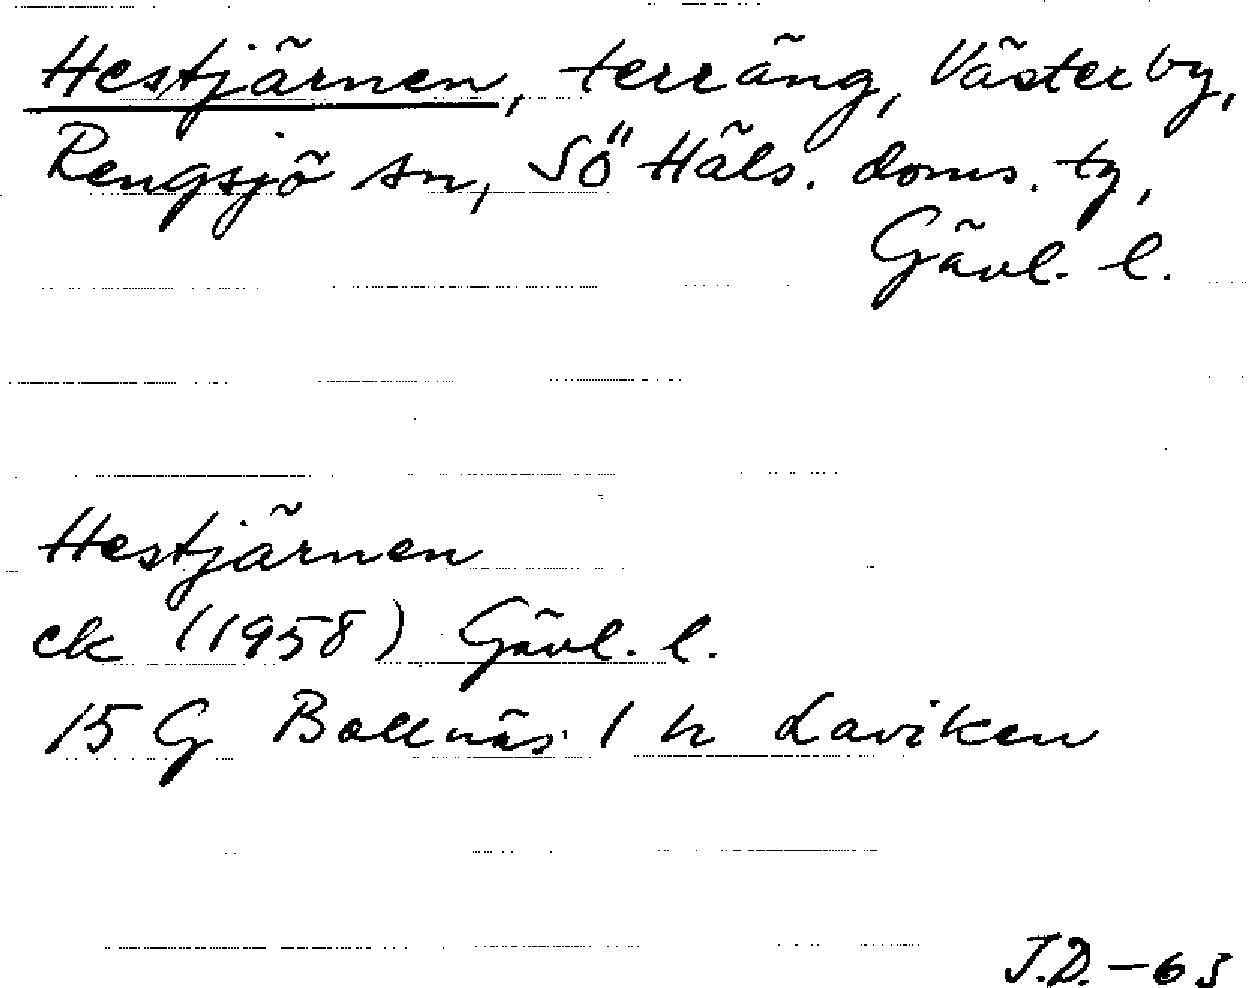 Hestjärnen, terräng, Västerby,
Rengsjö sn, SÖ Häls. doms. tg,
Gävl. l.
Hestjärnen
ek (1958) Gävl. l.
15 G Bollnäs 1 h Laviken
J.D. - 65